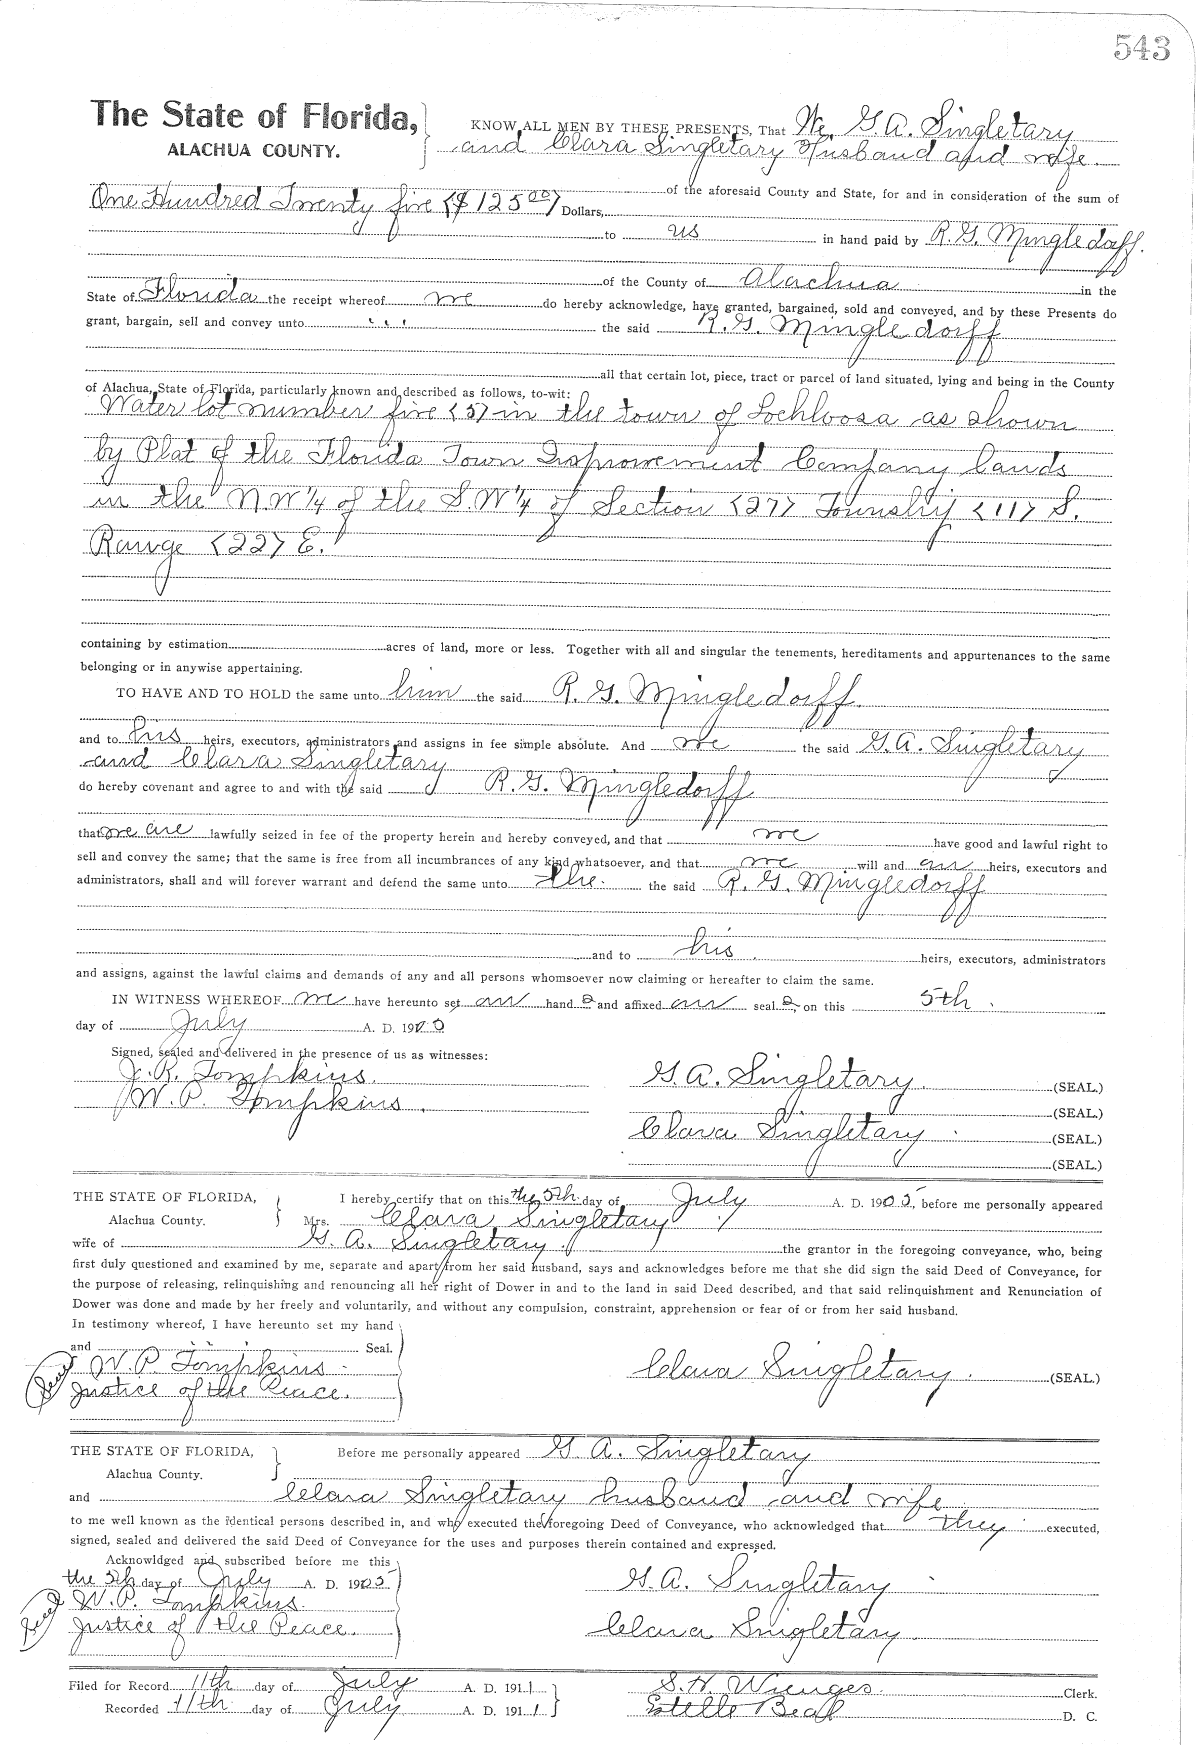 543
The State of Florida,
ALACHUA COUNTY.
KNOW ALL MEN BY THESE PRESENTS, That We, G. A. Singletary
and Clara Singletary Husband and wife.
of the aforesaid County and State, for and in consideration of the sum of
One Hundred Twenty five ($ 125 00) Dollars,
to us in hand paid by R. G. Mingledorff.
of the County of Alachua in the
State of Florida the receipt whereof we do hereby acknowledge, have granted, bargained, sold and conveyed, and by these Presents do
grant, bargain, sell and convey unto the said R. G. Mingledorff
all that certain lot, piece, tract or parcel of land situated, lying and being in the County
of Alachua, State of Florida, particularly known and described as follows, to-wit:
Water lot number five (5) in the town of Lochloosa as shown
by Plat of the Florida Town Improvement Company lands
in the N.W 1/4 of the S.W 1/4 of Section (27) Township (11) S.
Range (22) E.
containing by estimation acres of land, more or less. Together with all and singular the tenements, hereditaments and appurtenances to the same
belonging or in anywise appertaining.
TO HAVE AND TO HOLD the same unto him the said R. G. Mingledorff.
and to his heirs, executors, administrators and assigns in fee simple absolute. And we the said G. A. Singletary
and Clara Singletary
do hereby covenant and agree to and with the said R. G. Mingledorff
that we are lawfully seized in fee of the property herein and hereby conveyed, and that we have good and lawful right to
sell and convey the same; that the same is free from all incumbrances of any kind whatsoever, and that we will and our heirs, executors and
administrators, shall and will forever warrant and defend the same unto the the said R. G. Mingledorff
and to his heirs, executors, administrators
and assigns, against the lawful claims and demands of any and all persons whomsoever now claiming or hereafter to claim the same.
IN WITNESS WHEREOF we have hereunto set our hand s and affixed our seal s, on this 5th.
day of July A. D. 190
Signed, sealed and delivered in the presence of us as witnesses:
J. R. Tompkins.
W. P. Tompkins.
G. A. Singletary. (SEAL.)
(SEAL.)
Clara Singletary (SEAL.)
(SEAL.)
THE STATE OF FLORIDA,
Alachua County.
I hereby certify that on this the 5th day of July A. D. 1905, before me personally appeared
Mrs. Clara Singletary
wife of G. A. Singletary. the grantor in the foregoing conveyance, who, being
first duly questioned and examined by me, separate and apart from her said husband, says and acknowledges before me that she did sign the said Deed of Conveyance, for
the purpose of releasing, relinquishing and renouncing all her right of Dower in and to the land in said Deed described, and that said relinquishment and Renunciation of
Dower was done and made by her freely and voluntarily, and without any compulsion, constraint, apprehension or fear of or from her said husband.
In testimony whereof, I have hereunto set my hand
and Seal.
Seal W. P. Tompkins
Justice of the Peace.
Clara Singletary. (SEAL.)
THE STATE OF FLORIDA,
Alachua County.
Before me personally appeared G A. Singletary
and Clara Singletary husband and wife
to me well known as the identical persons described in, and who executed the foregoing Deed of Conveyance, who acknowledged that they executed,
signed, sealed and delivered the said Deed of Conveyance for the uses and purposes therein contained and expressed.
Acknowldged and subscribed before me this
the 5th day of July A. D. 1905
Seal W. P. Tompkins.
Justice of the Peace.
G. A. Singletary
Clara Singletary.
Filed for Record 11th day of July A. D. 1911
Recorded 11th day of July A. D. 1911
S. H. Wienges. Clerk.
Estelle Beall D. C.